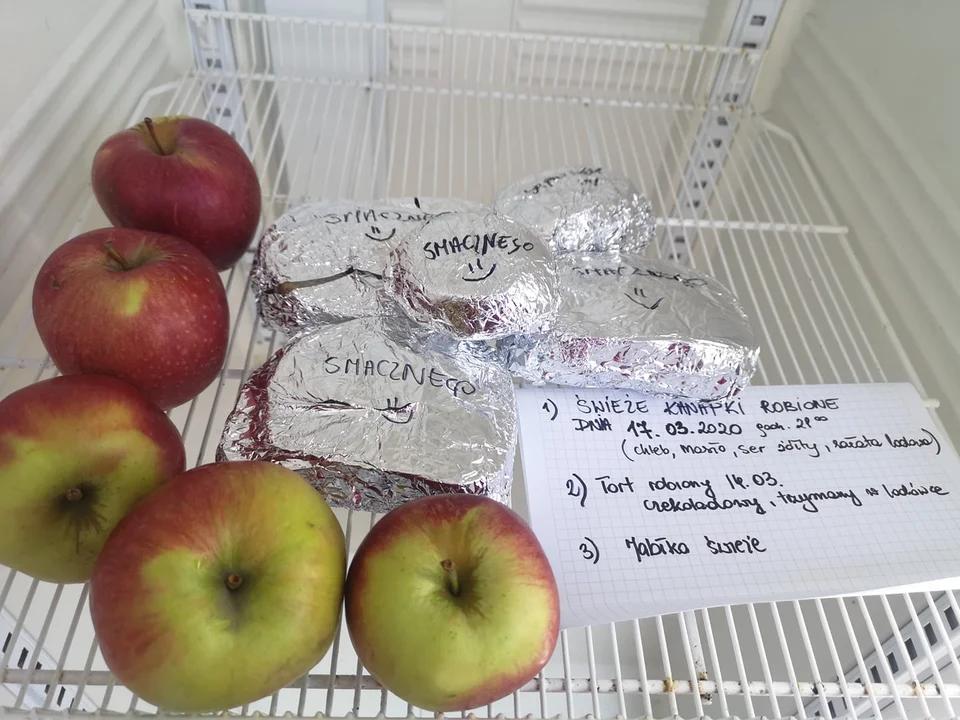 SMACZNEGO
SMACZNEGO
SMACZNEGO
SMACZNEGO
1) ŚWIEŻE KANAPKI ROBIONE
DNIA 17.03.2020 godz. 21⁰⁰
(chleb, masło, ser żółty, sałata lodowa)
2) Tort robiony 14.03.
czekoladowy, trzymany w lodówce
3) Jabłka świeże